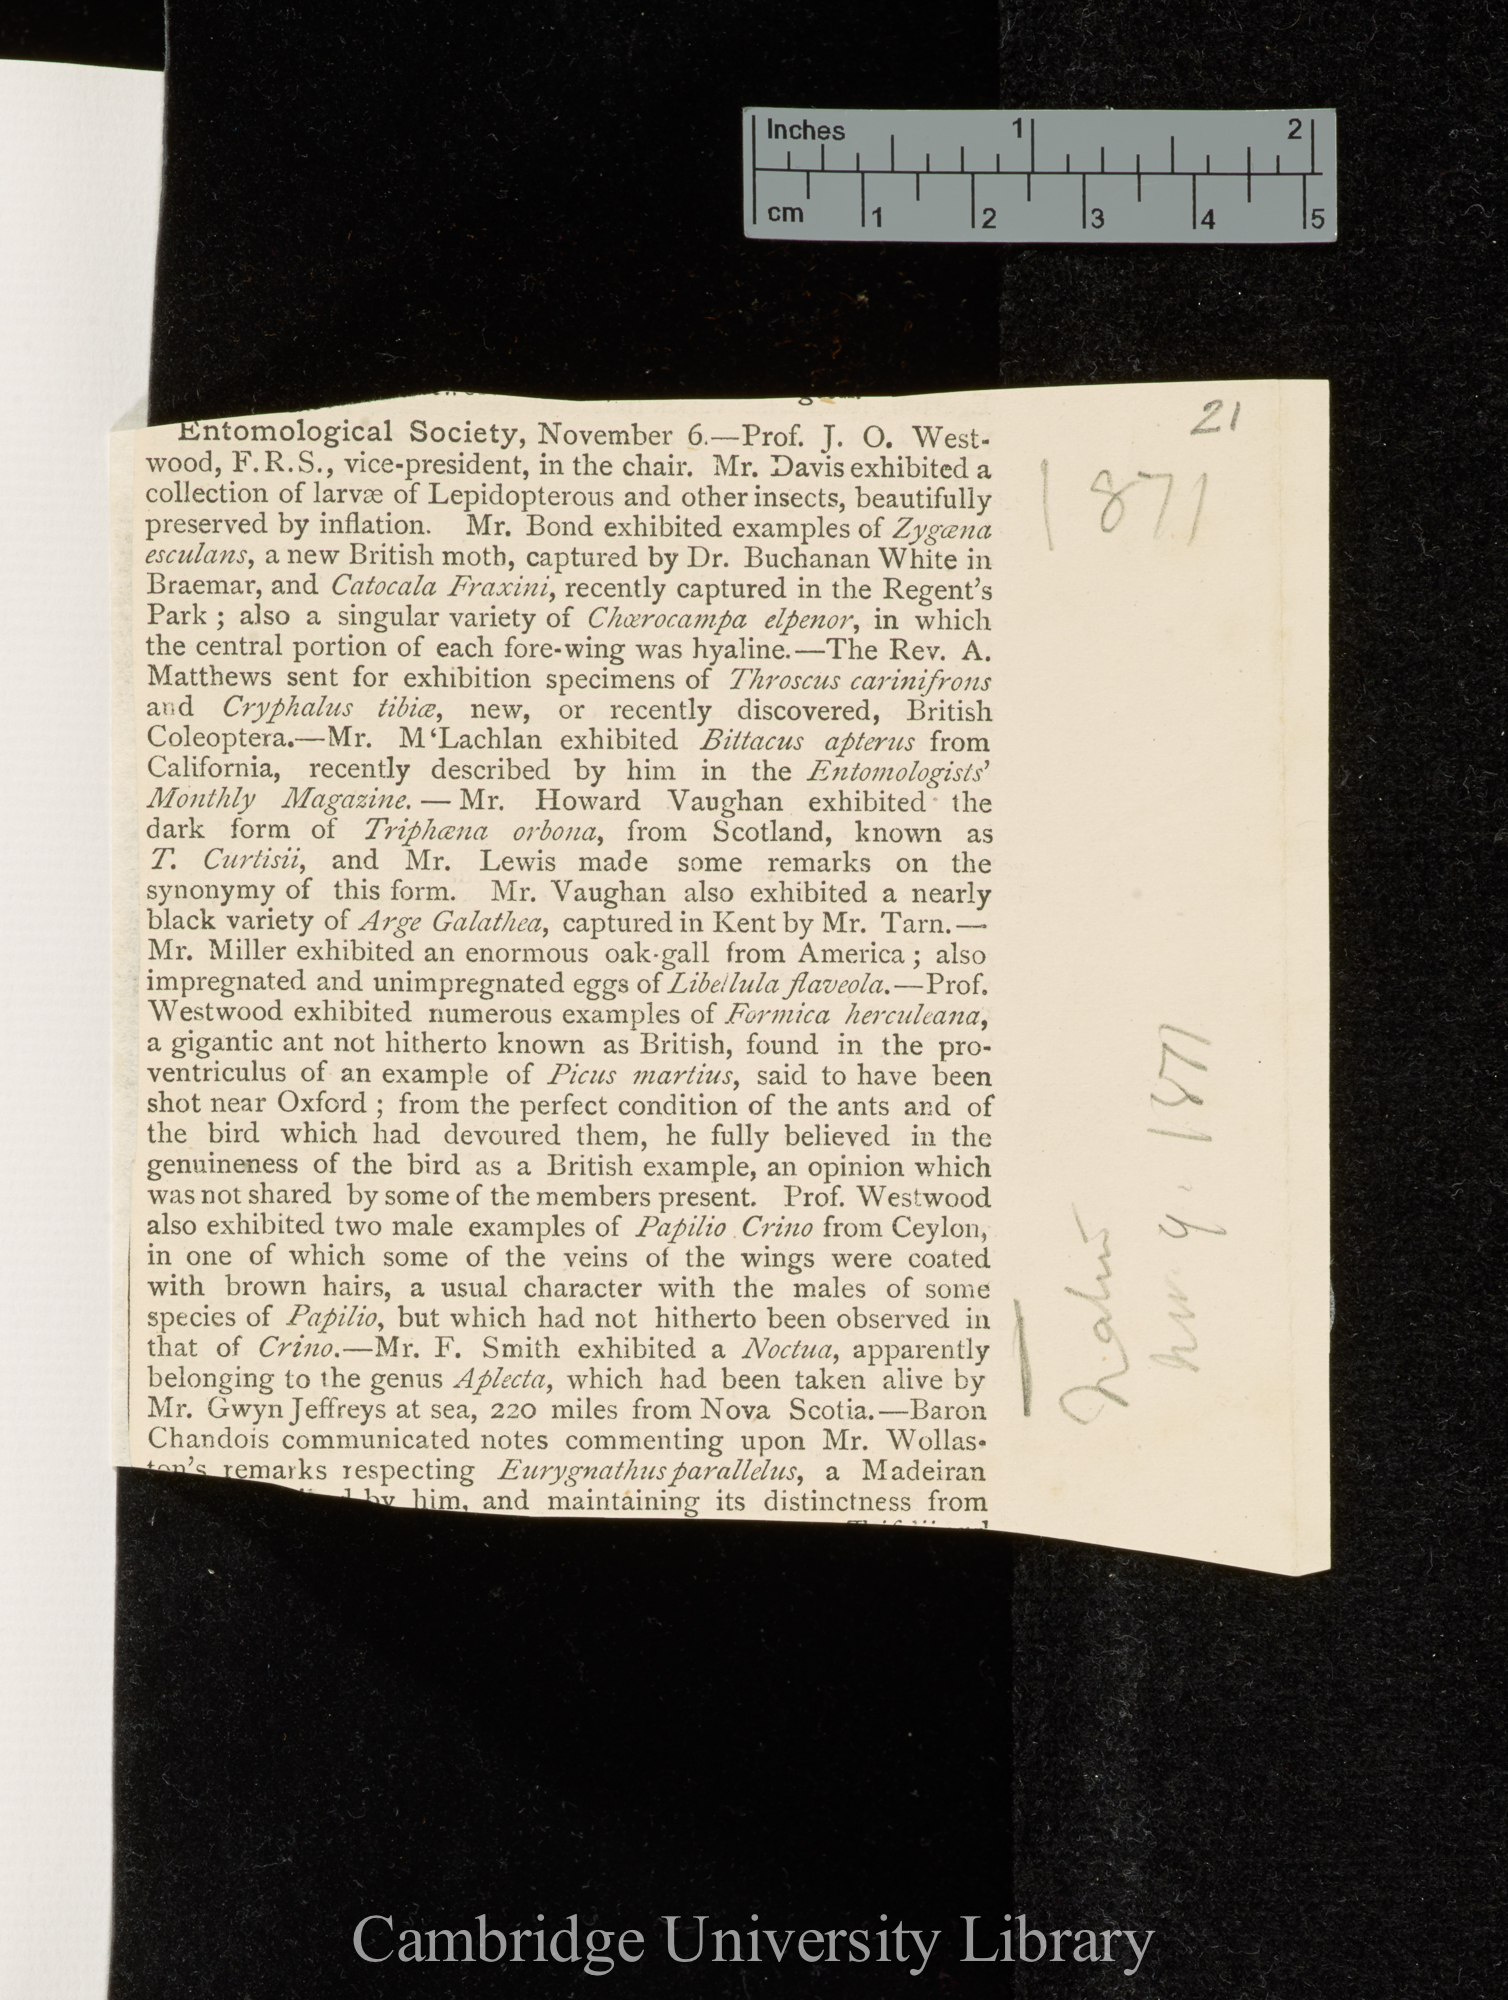 Inches 1 2
cm 1 2 3 4 5
21
1871
Entomological Society, November 6.—Prof. J. O. West-
wood, F.R.S., vice-president, in the chair. Mr. Davis exhibited a
collection of larvæ of Lepidopterous and other insects, beautifully
preserved by inflation. Mr. Bond exhibited examples of Zygæna
esculans, a new British moth, captured by Dr. Buchanan White in
Braemar, and Catocala Fraxini, recently captured in the Regent's
Park ; also a singular variety of Chœrocampa elpenor, in which
the central portion of each fore-wing was hyaline.—The Rev. A.
Matthews sent for exhibition specimens of Throscus carinifrons
and Cryphalus tibiæ, new, or recently discovered, British
Coleoptera.—Mr. M‘Lachlan exhibited Bittacus apterus from
California, recently described by him in the Entomologists'
Monthly Magazine. — Mr. Howard Vaughan exhibited the
dark form of Triphæna orbona, from Scotland, known as
T. Curtisii, and Mr. Lewis made some remarks on the
synonymy of this form. Mr. Vaughan also exhibited a nearly
black variety of Arge Galathea, captured in Kent by Mr. Tarn.—
Mr. Miller exhibited an enormous oak-gall from America ; also
impregnated and unimpregnated eggs of Libellula flaveola.—Prof.
Westwood exhibited numerous examples of Formica herculeana,
a gigantic ant not hitherto known as British, found in the pro-
ventriculus of an example of Picus martius, said to have been
shot near Oxford ; from the perfect condition of the ants and of
the bird which had devoured them, he fully believed in the
genuineness of the bird as a British example, an opinion which
was not shared by some of the members present. Prof. Westwood
also exhibited two male examples of Papilio Crino from Ceylon,
in one of which some of the veins of the wings were coated
with brown hairs, a usual character with the males of some
species of Papilio, but which had not hitherto been observed in
that of Crino.—Mr. F. Smith exhibited a Noctua, apparently
belonging to the genus Aplecta, which had been taken alive by
Mr. Gwyn Jeffreys at sea, 220 miles from Nova Scotia.—Baron
Chandois communicated notes commenting upon Mr. Wollas-
ton's remarks respecting Eurygnathus parallelus, a Madeiran
by him, and maintaining its distinctness from
1871
Cambridge University Library